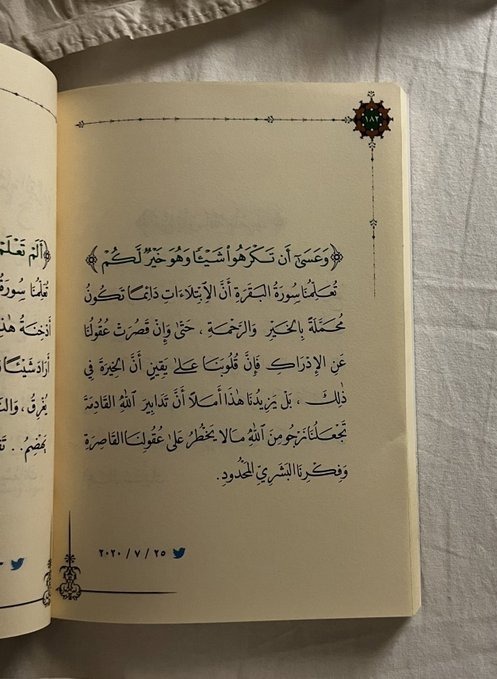 ١٨٢
﴿وَعَسَىٰٓ أَن تَكْرَهُوا۟ شَيْـًٔا وَهُوَ خَيْرٌ لَّكُمْ﴾
تُعَلِّمُنَا سُورَةُ البَقَرَةِ أَنَّ الِابْتِلَاءَاتِ دَائِمًا تَكُونُ
مُحَمَّلَةً بِالخَيْرِ وَالرَّحْمَةِ ، حَتَّىٰ وَإِنْ قَصُرَتْ عُقُولُنَا
عَنِ الإِدْرَاكِ فَإِنَّ قُلُوبَنَا عَلَىٰ يَقِينٍ أَنَّ الخِيَرَةَ فِي
ذَٰلِكَ ، بَلْ يَزِيدُنَا هَٰذَا أَمَلًا أَنَّ تَدَابِيرَ اللَّهِ القَادِمَةَ
تَجْعَلُنَا نَرْجُو مِنَ اللَّهِ مَا لَا يَخْطُرُ عَلَىٰ عُقُولِنَا القَاصِرَةِ
وَفِكْرِنَا البَشَرِيِّ المَحْدُودِ.
٢٠٢٠ / ٧ / ٢٥
﴿أَلَمْ تَعْلَمْ
تُعَلِّمُنَا سُورَةُ
هَٰذِ
أَرَادَ شَيْئًا